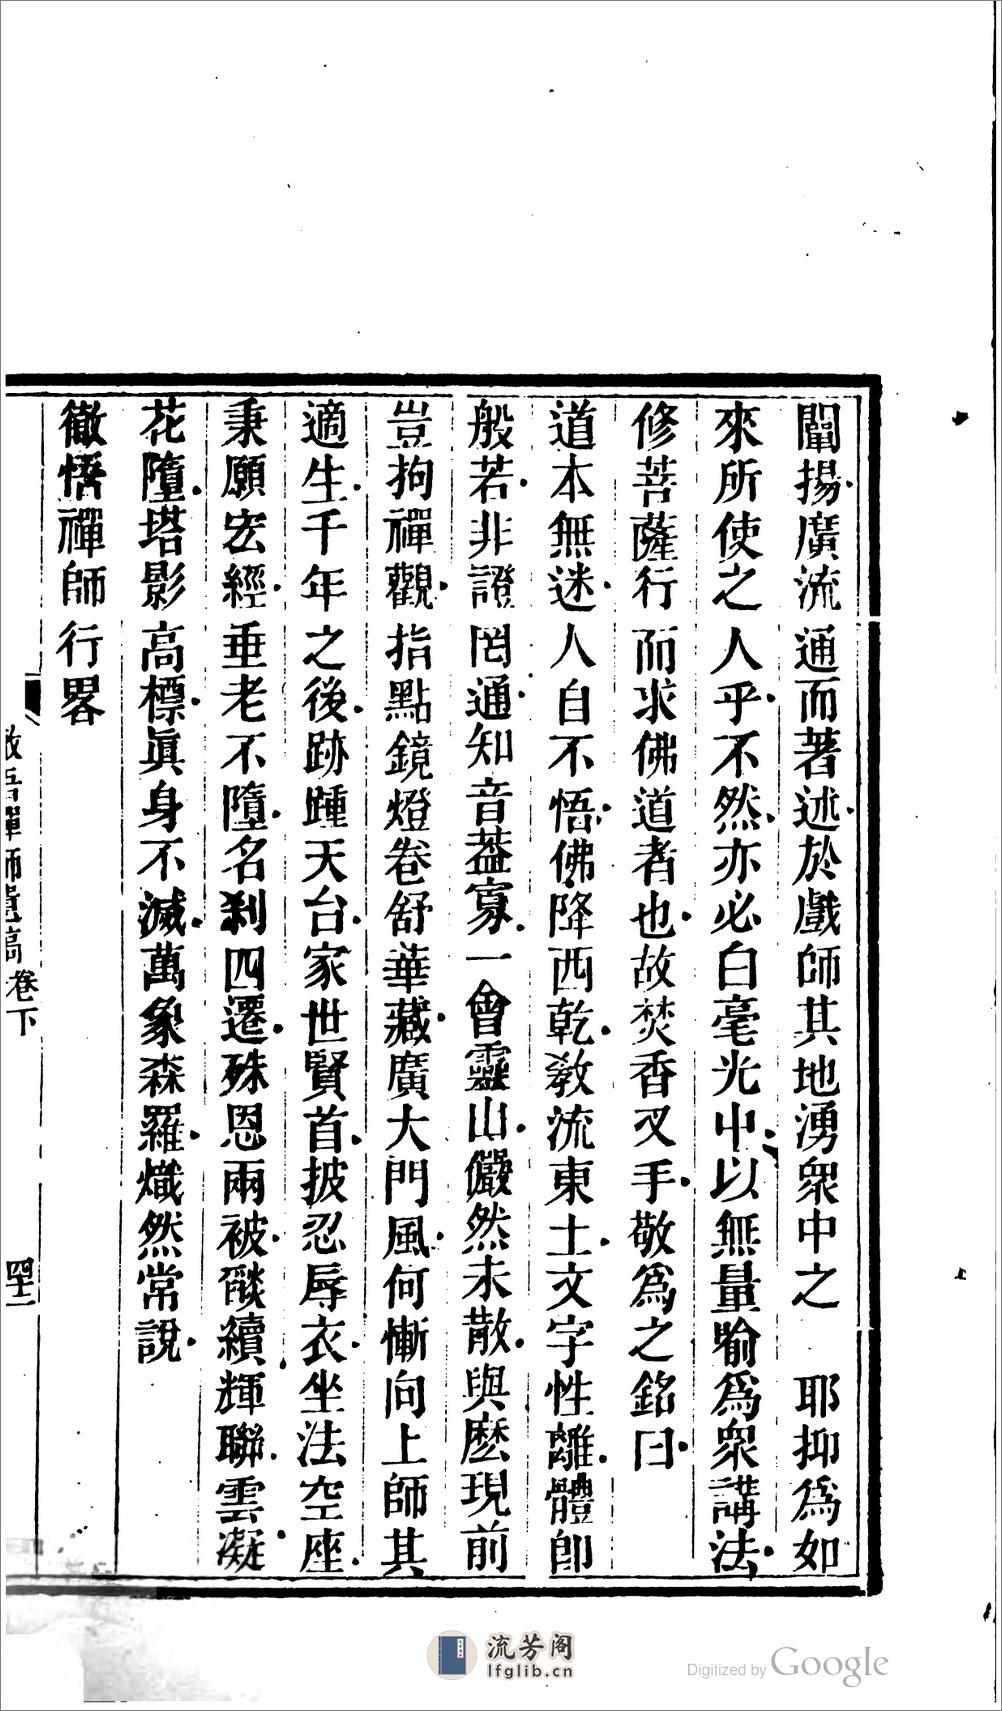 闡揚廣流通而著述於戲師其地湧衆中之　耶抑爲如
來所使之人乎不然亦必白毫光中以無量喻爲衆講法
修菩薩行而求佛道者也故焚香叉手敬爲之銘曰
道本無迷人自不悟佛降西乾敎流東土文字性離體卽
般若非證罔通知音葢寡一會靈山儼然未散與麽現前
豈拘禪觀指點鏡燈卷舒華藏廣大門風何慚向上師其
適生千年之後跡踵天台家世賢首披忍辱衣坐法空座
秉願宏經垂老不墮名刹四遷殊恩兩被燄續輝聯雲凝
花墮塔影高標眞身不滅萬象森羅熾然常說
徹悟禪師行畧
徹悟禪師遺稿卷下
四十二
流芳阁
lfglib.cn
Digitized by Google